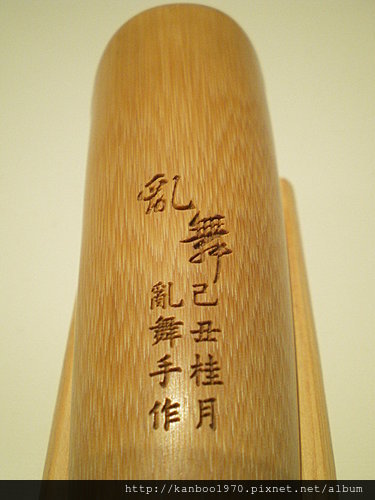 亂舞
己丑桂月
亂舞手作
http://kanboo1970.pixnet.net/album